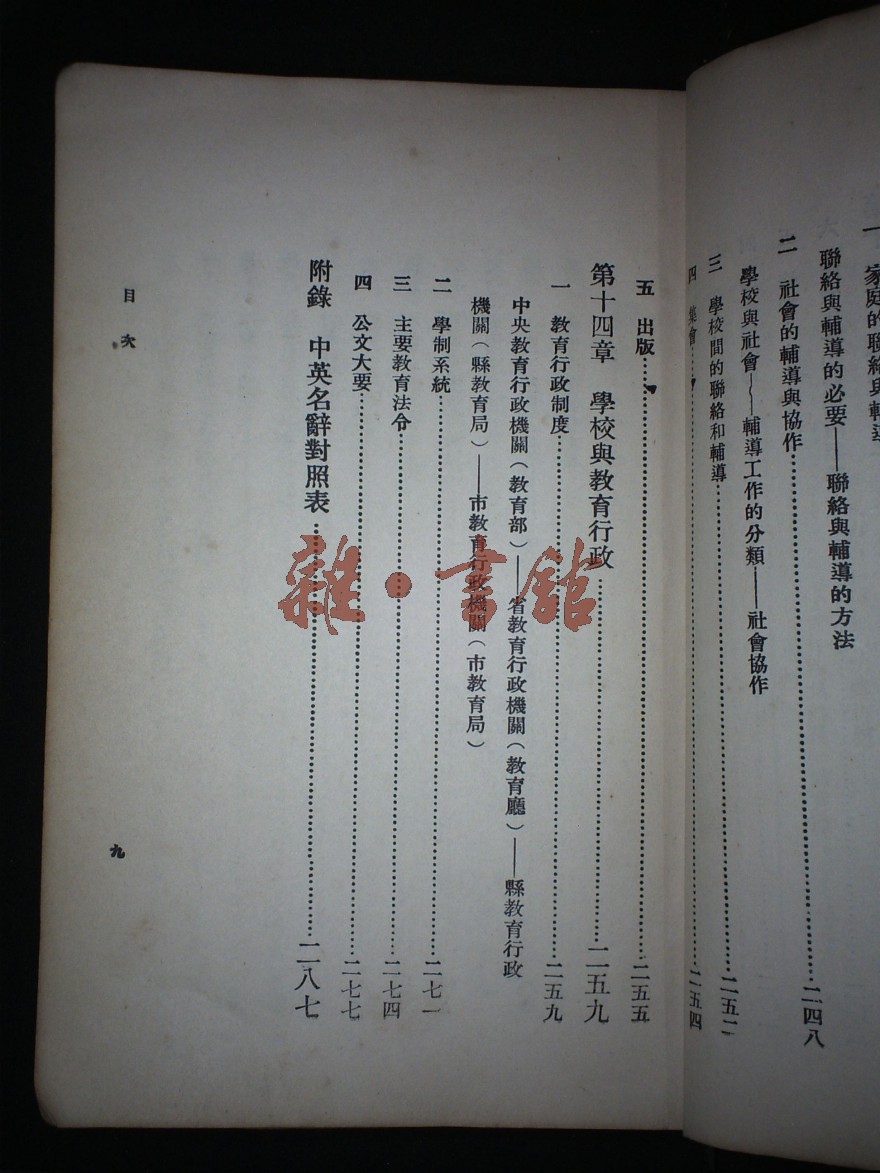 一 家庭的聯絡與輔導
聯絡與輔導的必要——聯絡與輔導的方法
二 社會的輔導與協作……二四八
學校與社會——輔導工作的分類——社會協作
三 學校間的聯絡和輔導……二五二
四 集會……二五四
五 出版……二五五
第十四章 學校與教育行政……二五九
一 教育行政制度……二五九
中央教育行政機關(教育部)——省教育行政機關(教育廳)——縣教育行政
機關(縣教育局)——市教育行政機關(市教育局)
二 學制系統……二七一
三 主要教育法令……二七四
四 公文大要……二七七
附錄 中英名辭對照表……二八七
目次
九
雜·書館